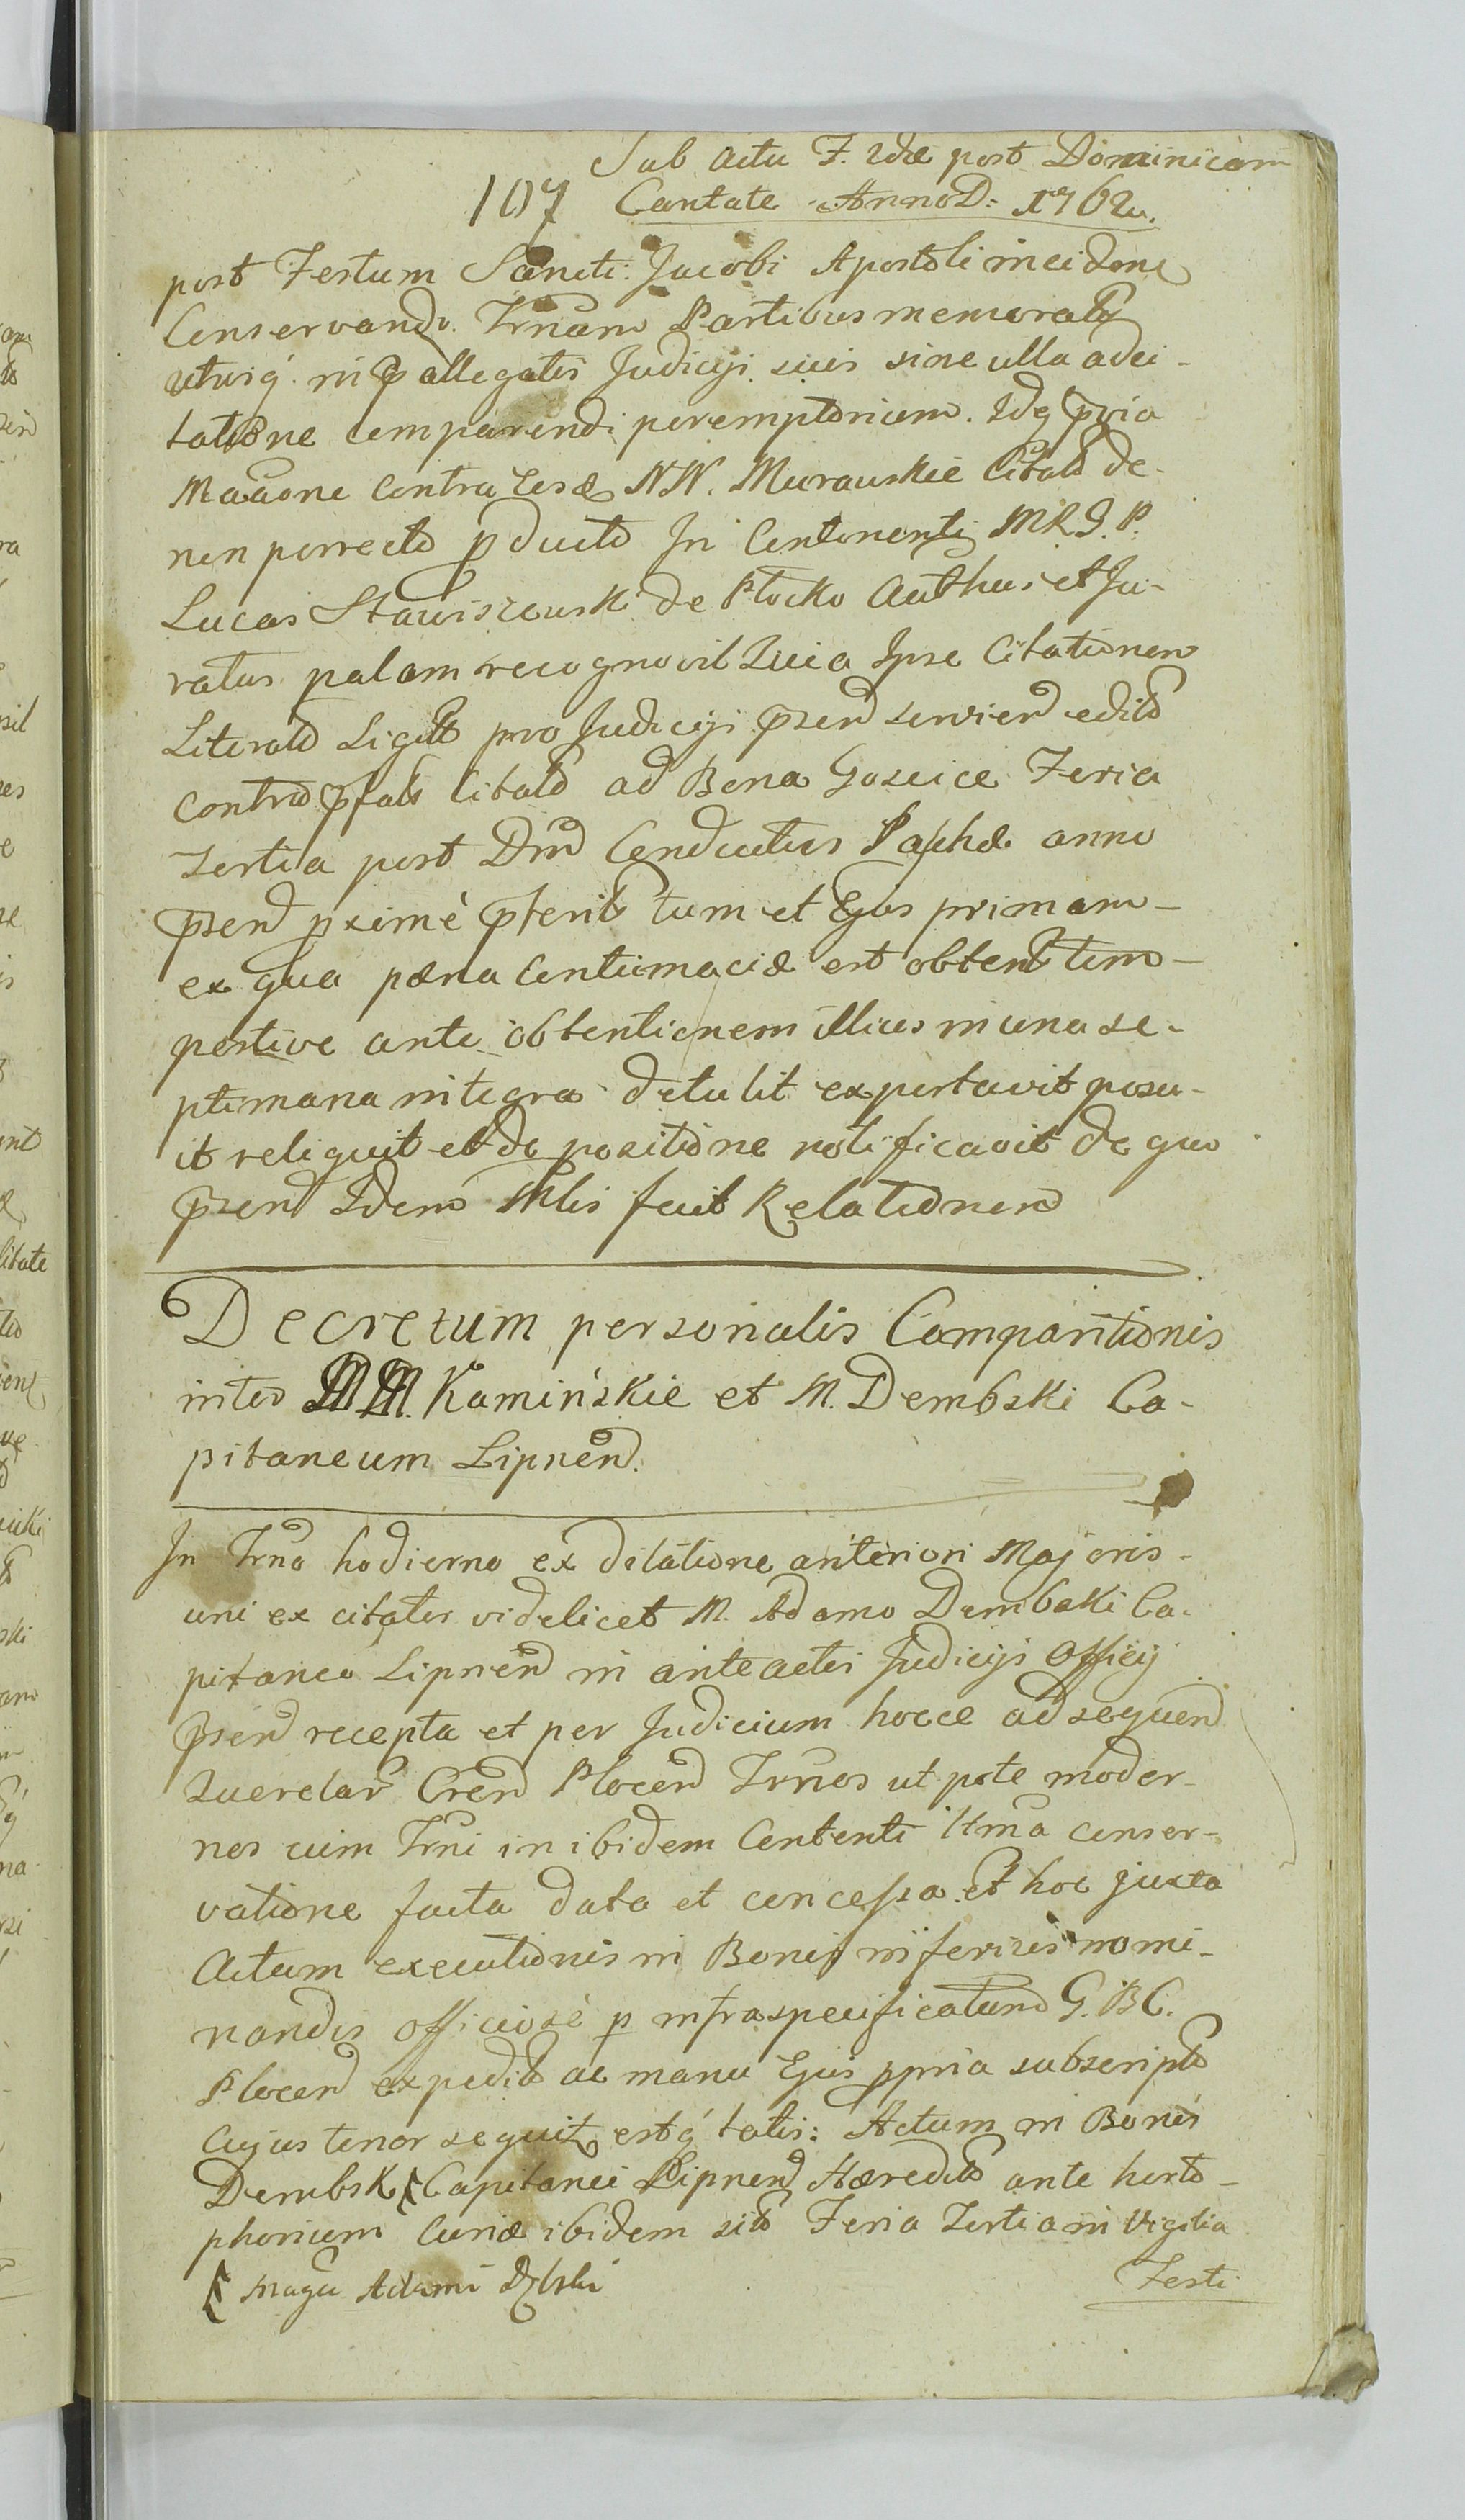 Sub Actu F. 2dæ post Dominicam
107 Cantate Anno D: 1762do.
post Festum Sancti Jacobi Apostoli inciden
Conservandu. Trnum Partibus memorats
utrisq. in pallegatis Judicijs suis sine ulla adci-
tatione comparendi peremptorium. Idq pvia
contra Ses NN. Murauskie Citats de-
non porrecto pducto In Continenti MRJ.P.
Lucas Stawiszewski de Plocko Authus et Ju-
ratus palam recognovit Quia Ipse Citationem
Literald Sigilt pro Judicijs psen servien edits
contra pfats Citats ad Bona Goscice Feria
Tertia post Dnm Conductus Paschæ anno
psen pximè pterit tum et Ejus primam
ex qua pæna Contumaciæ est obtent tem-
pestive ante obtentionem illius in una se-
ptimana integra detulit exportavit posu-
it reliquit et de positione notificavit de quo
psen Idem Mlis fecit Relationem
Decretum personalis Comparitionis
inter MM. Kamińskie et M. Dembski Ca-
pitaneum Lipnen.
In Trno hodierno ex dilatione anteriori Majoris
uni ex citatis videlicet M. Adamo Dembski Ca-
pitaneo Lipnen in anteactis Judicijs Officij
psen recepta et per Judicium hocce ad sequen
Querelar Cren Plocen Trnos ut pote moder-
nos cum Trni in ibidem Contenti Ilma conser-
vatione facta data et concessa et hoc juxta
Actum executionis in Bonis inferius nomi-
nandis officiosè p infraspecificatum G. B C.
Plocen expedit ac manu Ejus ppria subscript
Cujus tenor sequit estq talis: Actum in Bonis
Dembsk Capitanei Lipnen Hæredit ante horto-
phorium Curiæ ibidem sit Feria Tertia in Vigilia
Magci Adami Dębski Festi